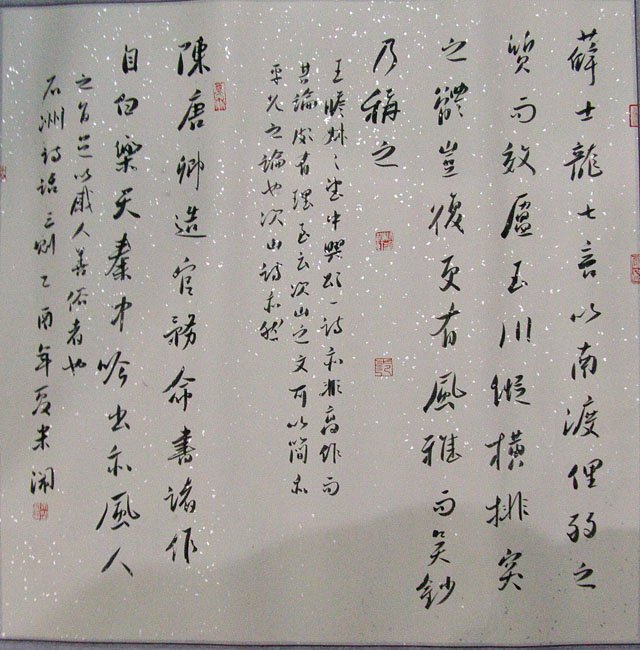 薛士龍七言以南渡俚弱之
質而效盧玉川縱橫排突
之體豈復更有風雅而吳鈔
乃稱之
王中興頌一詩亦非高作而
其論有理至云次山之文可以簡亦
平允之論也次山詩亦然
陳唐卿造官務命書諸作
自白樂天秦中吟出亦風人
之旨足以感人善俗者也
石洲詩話三則乙酉年夏